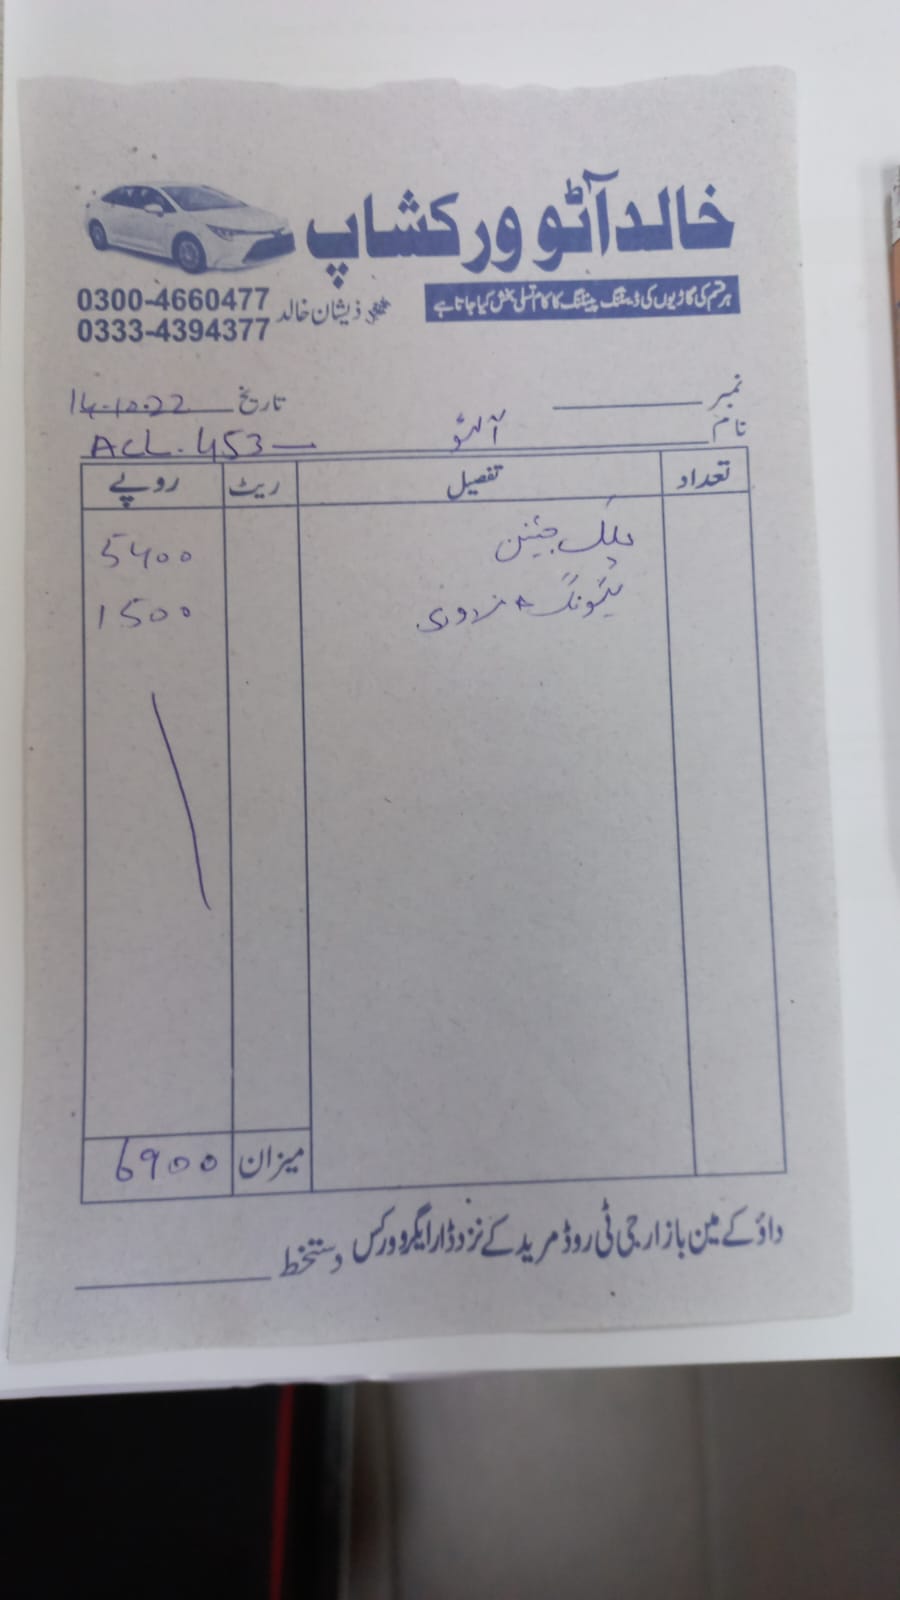 خالد آٹو ورکشاپ
ہر قسم کی گاڑیوں کی ڈینٹنگ پینٹنگ کا کام تسلی بخش کیا جاتا ہے
ذیشان خالد
0300-4660477
0333-4394377
نمبر تاریخ 14-10-22
نام آلٹو ACL-453
تعداد تفصیل ریٹ روپے
پلگ جینن 5400
ٹیوننگ مزدوری 1500
میزان 6900
داؤکے مین بازار جی ٹی روڈ مریدکے نزد ڈار ایگرو ورکس
دستخط